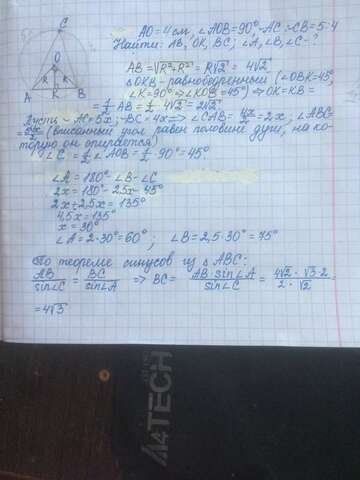 C
O
R R
A K B
AO = 4 см, ∠AOB = 90°, ◡AC : ◡CB = 5:4
Найти: AB, OK, BC; ∠A, ∠B, ∠C - ?
AB = √R²+R² = R√2 = 4√2
△OKB - равнобедренный (∠OBK=45°,
∠K = 90° ⇒ ∠KOB = 45°) ⇒ OK = KB =
= 1/2 AB = 1/2 · 4√2 = 2√2
Пусть ◡AC = 5x, ◡BC = 4x ⇒ ∠CAB = 4x/2 = 2x; ∠ABC
= 5x/2 (вписанный угол равен половине дуги, на ко-
торую он опирается)
∠C = 1/2 ∠AOB = 1/2 · 90° = 45°
∠A = 180° ∠B - ∠C
2x = 180° - 2,5x - 45°
2x + 2,5x = 135°
4,5x = 135°
x = 30°
∠A = 2·30° = 60° ; ∠B = 2,5·30° = 75°
По теореме синусов из △ABC:
AB/sin∠C = BC/sin∠A ⇒ BC = AB·sin∠A/sin∠C = 4√2 · √3·2/2 · √2 =
= 4√3
A4TECH